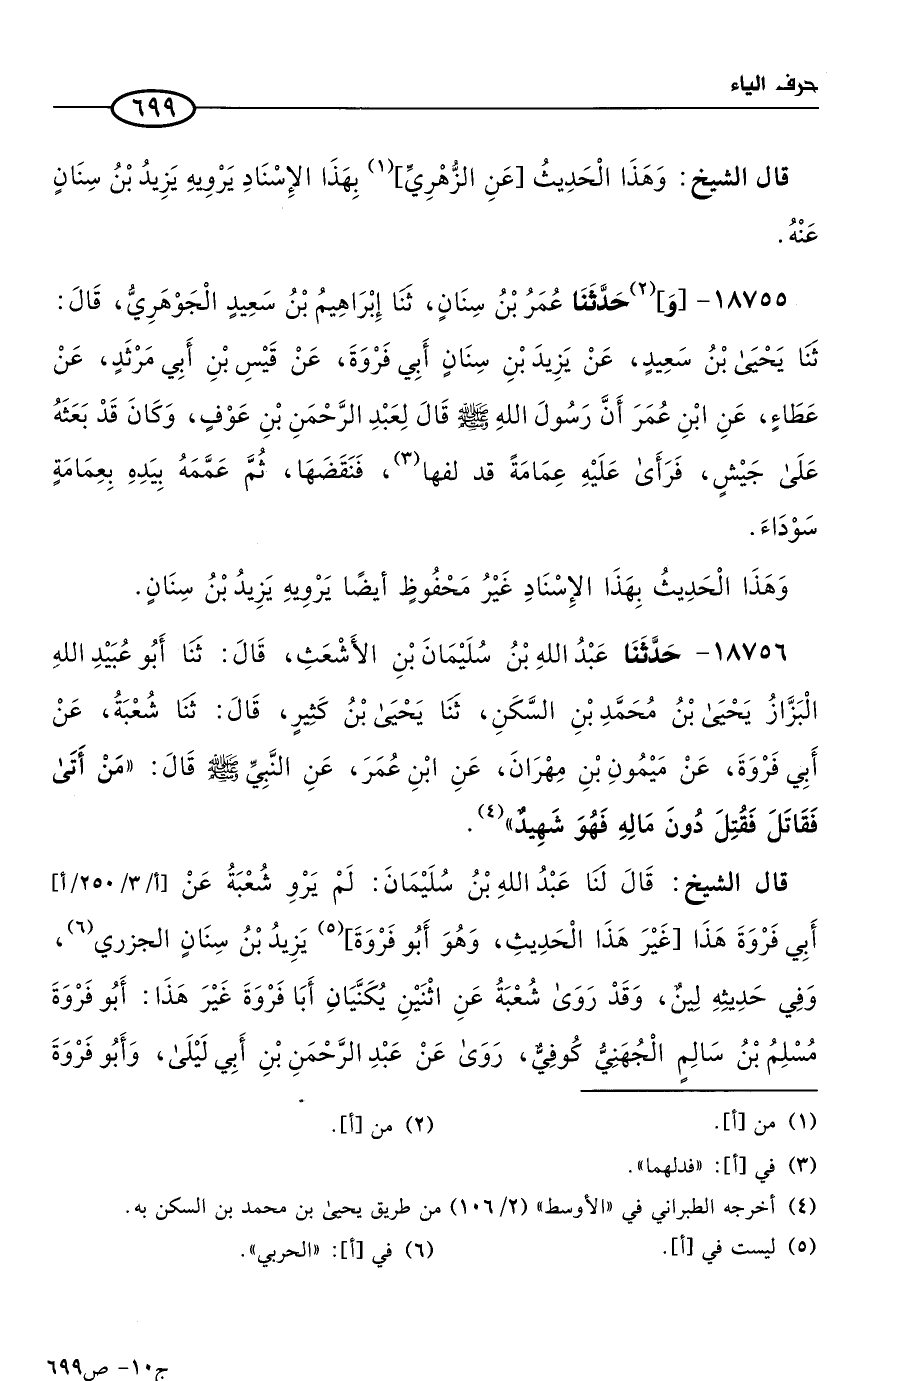 حرف الياء
٦٩٩
قال الشيخ: وَهَذَا الْحَدِيثُ [عَنِ الزُّهْرِيِّ](١) بِهَذَا الإِسْنَادِ يَرْوِيهِ يَزِيدُ بْنُ سِنَانٍ
عَنْهُ.
١٨٧٥٥- [وَ](٢)حَدَّثَنَا عُمَرُ بْنُ سِنَانٍ، ثَنَا إِبْرَاهِيمُ بْنُ سَعِيدٍ الْجَوْهَرِيُّ، قَالَ:
ثَنَا يَحْيَىٰ بْنُ سَعِيدٍ، عَنْ يَزِيدَ بْنِ سِنَانٍ أَبِي فَرْوَةَ، عَنْ قَيْسِ بْنِ أَبِي مَرْثَدٍ، عَنْ
عَطَاءٍ، عَنِ ابْنِ عُمَرَ أَنَّ رَسُولَ اللهِ ﷺ قَالَ لِعَبْدِ الرَّحْمَنِ بْنِ عَوْفٍ، وَكَانَ قَدْ بَعَثَهُ
عَلَىٰ جَيْشٍ، فَرَأَىٰ عَلَيْهِ عِمَامَةً قد لفها(٣)، فَنَقَضَهَا، ثُمَّ عَمَّمَهُ بِيَدِهِ بِعِمَامَةٍ
سَوْدَاءَ.
وَهَذَا الْحَدِيثُ بِهَذَا الإِسْنَادِ غَيْرُ مَحْفُوظٍ أيضًا يَرْوِيهِ يَزِيدُ بْنُ سِنَانٍ.
١٨٧٥٦- حَدَّثَنَا عَبْدُ اللهِ بْنُ سُلَيْمَانَ بْنِ الأَشْعَثِ، قَالَ: ثَنَا أَبُو عُبَيْدِ اللهِ
الْبَزَّازُ يَحْيَىٰ بْنُ مُحَمَّدِ بْنِ السَّكَنِ، ثَنَا يَحْيَىٰ بْنُ كَثِيرٍ، قَالَ: ثَنَا شُعْبَةُ، عَنْ
أَبِي فَرْوَةَ، عَنْ مَيْمُونِ بْنِ مِهْرَانَ، عَنِ ابْنِ عُمَرَ، عَنِ النَّبِيِّ ﷺ قَالَ: «مَنْ أَتَىٰ
فَقَاتَلَ فَقُتِلَ دُونَ مَالِهِ فَهُوَ شَهِيدٌ»(٤).
قال الشيخ: قَالَ لَنَا عَبْدُ اللهِ بْنُ سُلَيْمَانَ: لَمْ يَرْوِ شُعْبَةُ عَنْ [أ/٣/٢٥٠/أ]
أَبِي فَرْوَةَ هَذَا [غَيْرَ هَذَا الْحَدِيثِ، وَهُوَ أَبُو فَرْوَةَ](٥) يَزِيدُ بْنُ سِنَانٍ الجزري(٦)،
وَفِي حَدِيثِهِ لِينٌ، وَقَدْ رَوَىٰ شُعْبَةُ عَنِ اثْنَيْنِ يُكَنَّيَانِ أَبَا فَرْوَةَ غَيْرَ هَذَا: أَبُو فَرْوَةَ
مُسْلِمُ بْنُ سَالِمٍ الْجُهَنِيُّ كُوفِيٌّ، رَوَىٰ عَنْ عَبْدِ الرَّحْمَنِ بْنِ أَبِي لَيْلَىٰ، وَأَبُو فَرْوَةَ
(١) من [أ]. (٢) من [أ].
(٣) في [أ]: «فدلهما».
(٤) أخرجه الطبراني في «الأوسط» (٢/ ١٠٦) من طريق يحيىٰ بن محمد بن السكن به.
(٥) ليست في [أ]. (٦) في [أ]: «الحربي».
ج١٠- ص٦٩٩